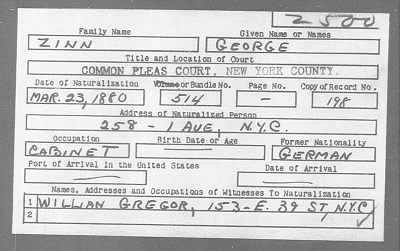 2500
Family Name Given Name or Names
ZINN GEORGE
Title and Location of Court
COMMON PLEAS COURT, NEW YORK COUNTY.
Date of Naturalization Volume or Bundle No. Page No. Copy of Record No.
MAR. 23, 1880 514 — 198
Address of Naturalized Person
258 - 1 AVE, N.Y.C.
Occupation Birth Date or Age Former Nationality
CABINET GERMAN
Port of Arrival in the United States Date of Arrival
— —
Names, Addresses and Occupations of Witnesses To Naturalization
1 WILLIAN GREGOR, 153-E. 39 ST, N.Y.C
2